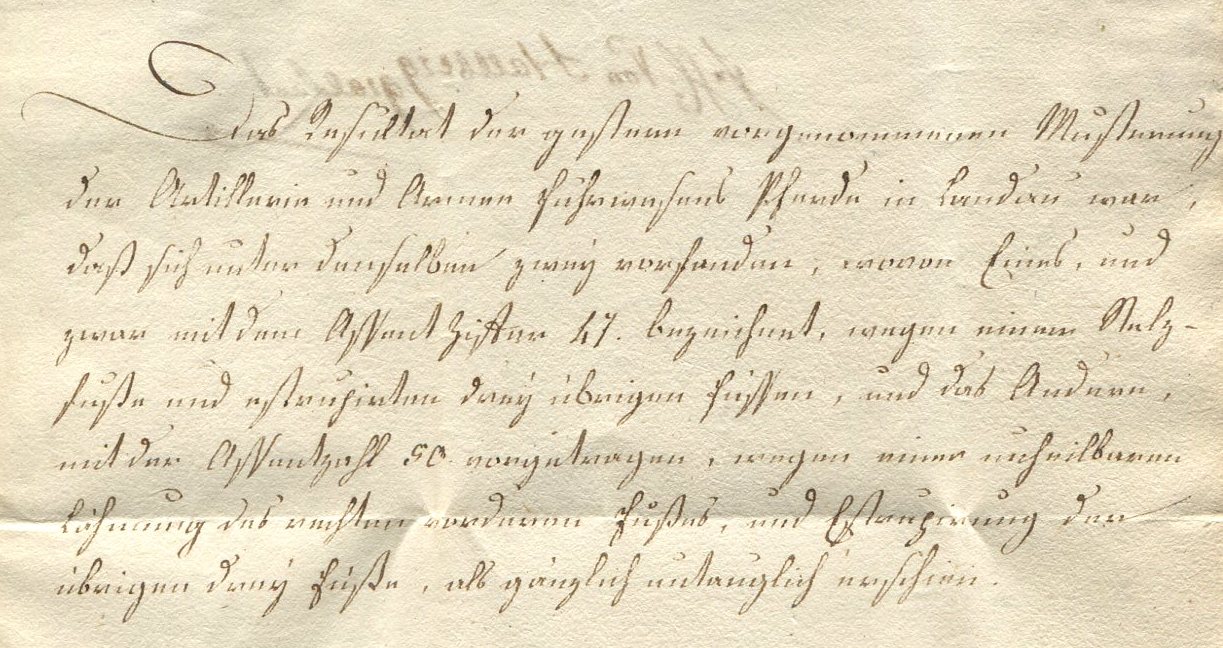 Das Resultat der gestern vorgenommenen Musterung
der Artillerie und Armee Fuhrwesens Pferde in Landau war,
daß sich unter denselben zwey vorfanden, wovon Eines, und
zwar mit dem Assent Ziffer 47. bezeichnet, wegen einem Stelz-
fuße und estrupirten drey übrigen Füssen, und das Andere,
mit der Assentzahl 50. vorgetragen, wegen einer unheilbaren
Lähmung des rechten vorderen Fußes, und Estrupirung der
übrigen drey Füße, als gänzlich untauglich erschien.